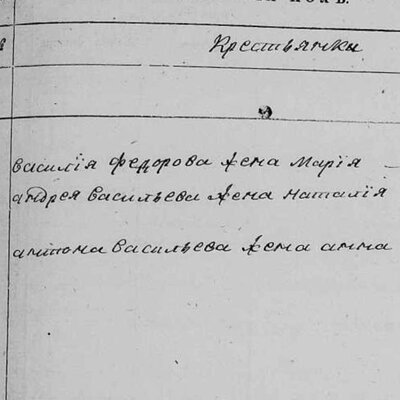 Крестьянки
василія федорова жена марія
андрея васильева жена наталія
антона васильева жена анна